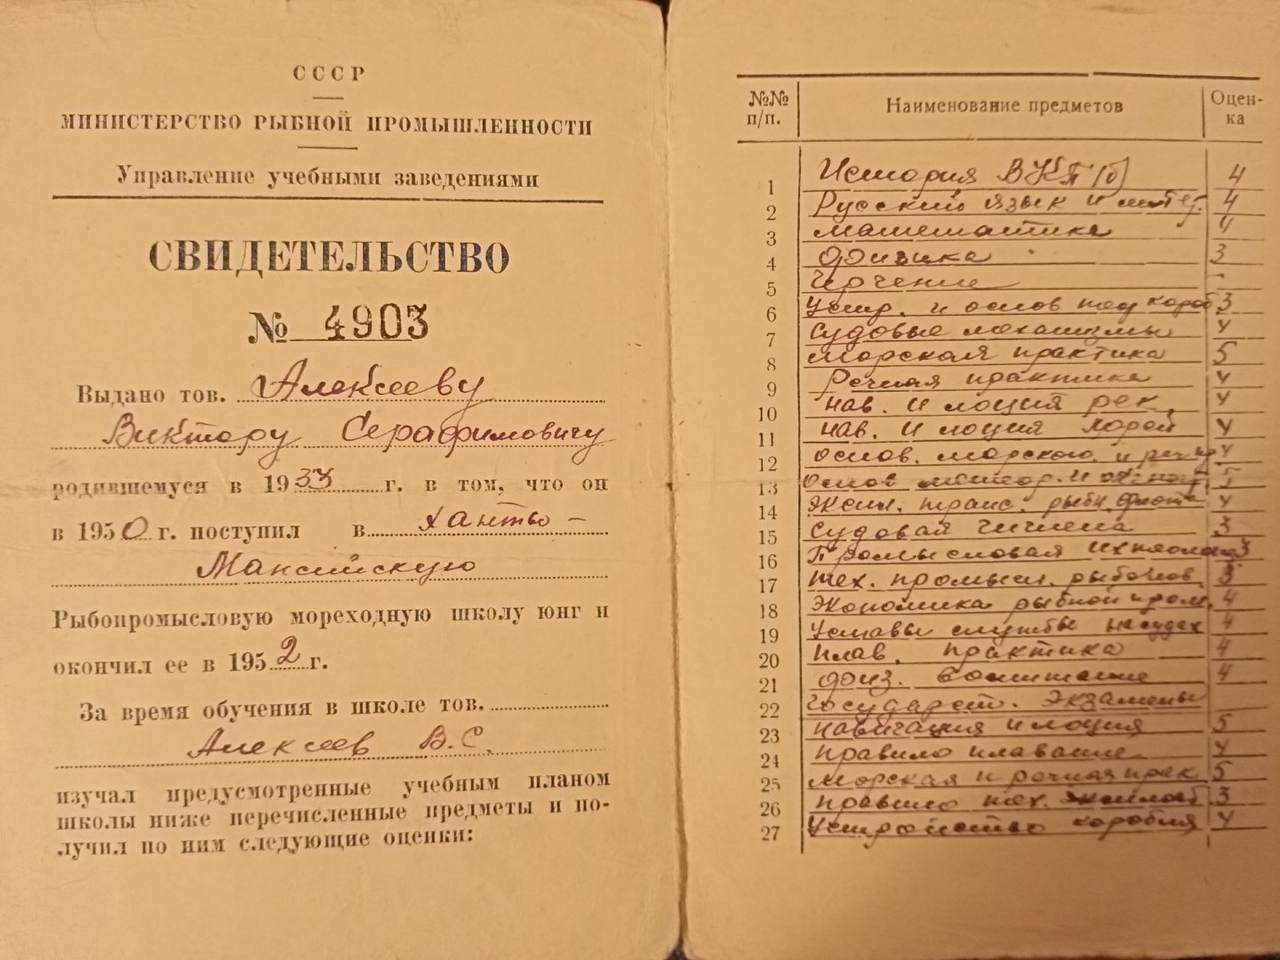 СССР
МИНИСТЕРСТВО РЫБНОЙ ПРОМЫШЛЕННОСТИ
Управление учебными заведениями
СВИДЕТЕЛЬСТВО
№ 4903
Выдано тов. Алексееву
Виктору Серафимовичу
родившемуся в 1933 г. в том, что он
в 1950 г. поступил в Ханты-
Мансийскую
Рыбопромысловую мореходную школу юнг и
окончил ее в 1952 г.
За время обучения в школе тов.
Алексеев В.С.
изучал предусмотренные учебным планом
школы ниже перечисленные предметы и по-
лучил по ним следующие оценки:
№№ п/п. Наименование предметов Оцен-ка
1 История ВКП(б) 4
2 Русский язык и литер. 4
3 Математика 4
4 Физика 3
5 Черчение -
6 Устр. и основ теор кораб 3
7 Судовые механизмы 4
8 Морская практика 5
9 Речная практика 4
10 Нав. и лоция рек 4
11 Нав. и лоция морей 4
12 Основ. морского и реч 4
13 Основ метеор. и 5
14 Экспл. транс. рыбн. флота 4
15 Судовая гигиена 3
16 Промысловая ихтиология 3
17 Тех. промысл. рыболов. 3
18 Экономика рыбной пром. 4
19 Уставы службы на судах 4
20 Плав. практика 4
21 Физ. воспитание 4
22 Государст. экзамены
23 Навигация и лоция 5
24 Правило плавание 4
25 Морская и речная прак 5
26 Правило тех. эксплоат 3
27 Устройство корабля 4